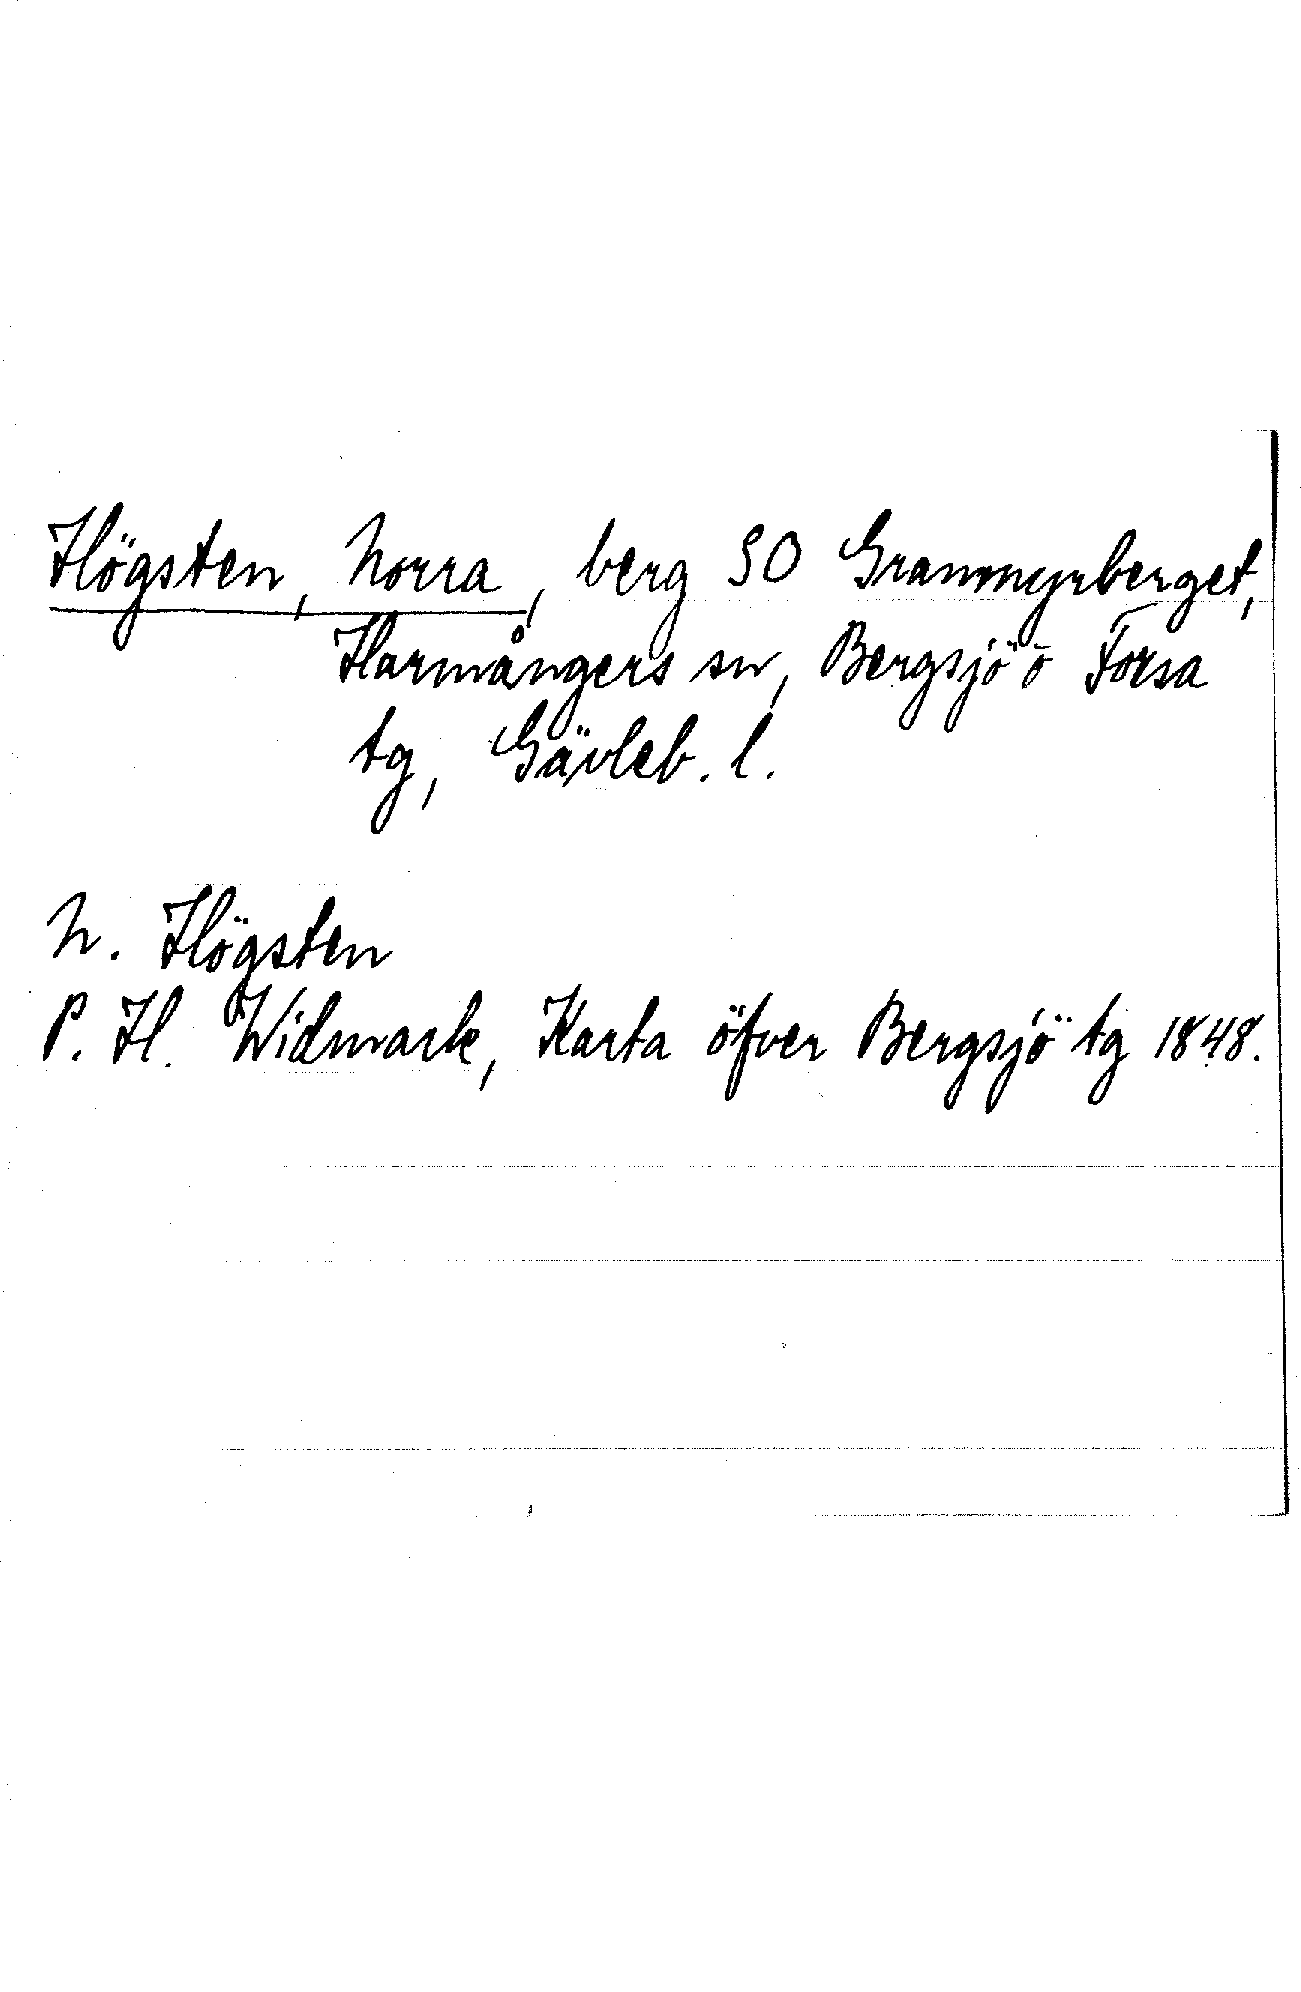 Högsten, Norra, berg SO Granmyrberget,
Harmångers sn, Bergsjö o Forsa
tg, Gävleb. l.
N. Högsten
P. H. Widmark, Karta öfver Bergsjö tg 1848.